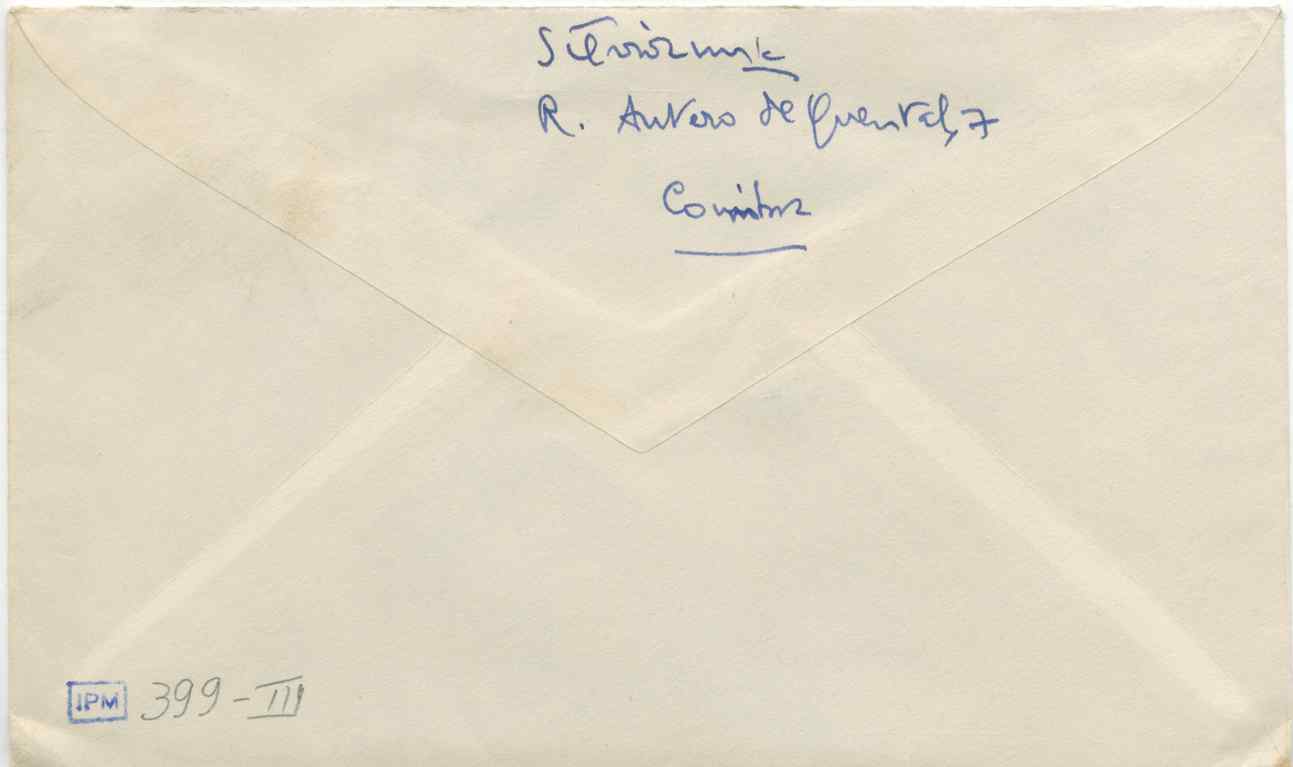 R. Antero de Quental, 7
Coimbra
IPM 399-III